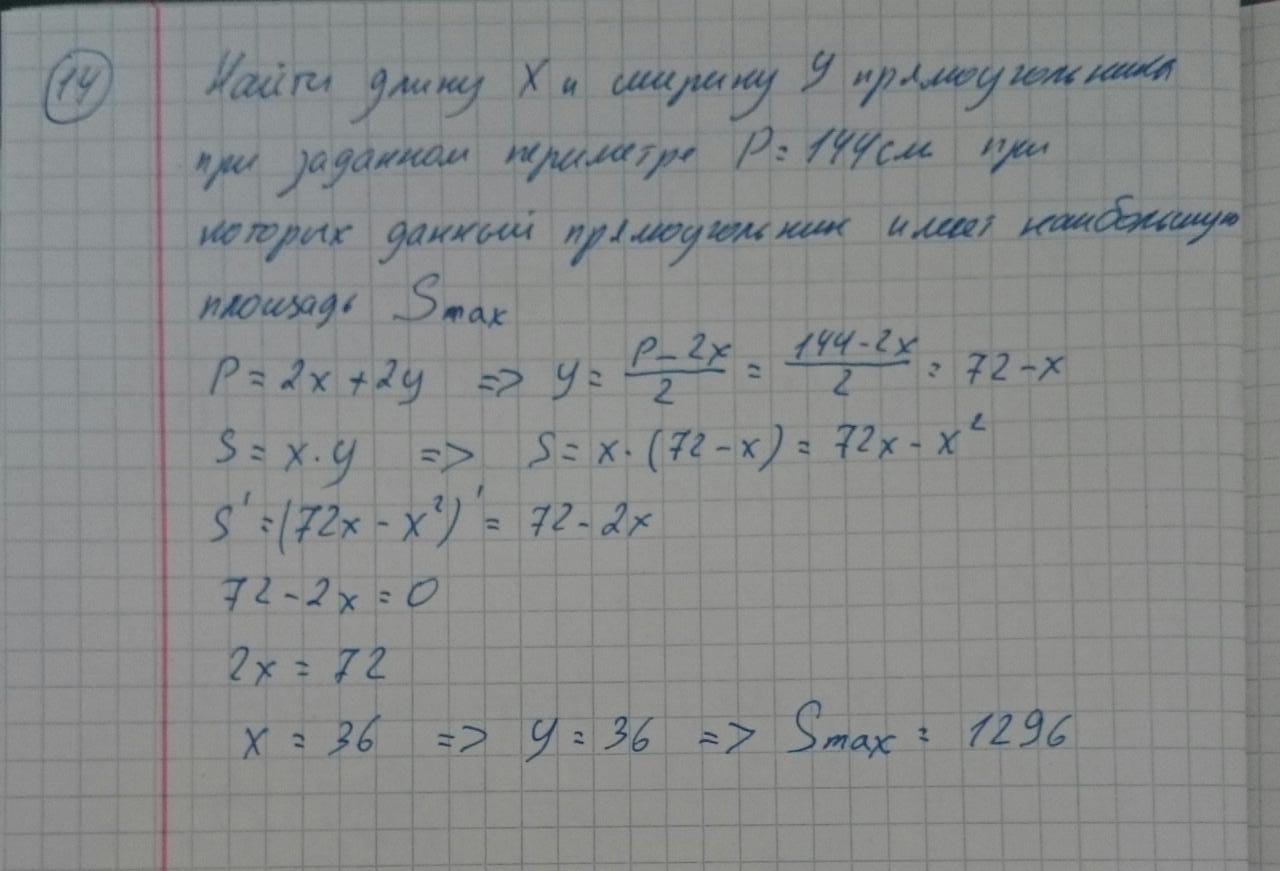 14
Найти длину X и ширину y прямоугольника
при заданном периметре P = 144 см при
которых данный прямоугольник имеет наибольшую
площадь Smax
P = 2x + 2y => y = (P - 2x)/2 = (144 - 2x)/2 = 72 - x
S = x · y => S = x · (72 - x) = 72x - x²
S' = (72x - x²)' = 72 - 2x
72 - 2x = 0
2x = 72
x = 36 => y = 36 => Smax = 1296